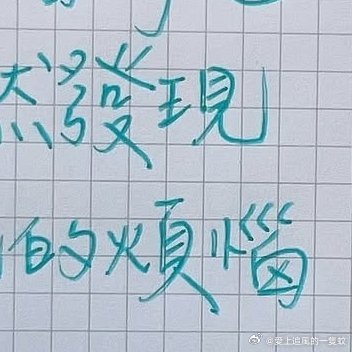 發現
的煩惱
@愛上追風的一隻蚊